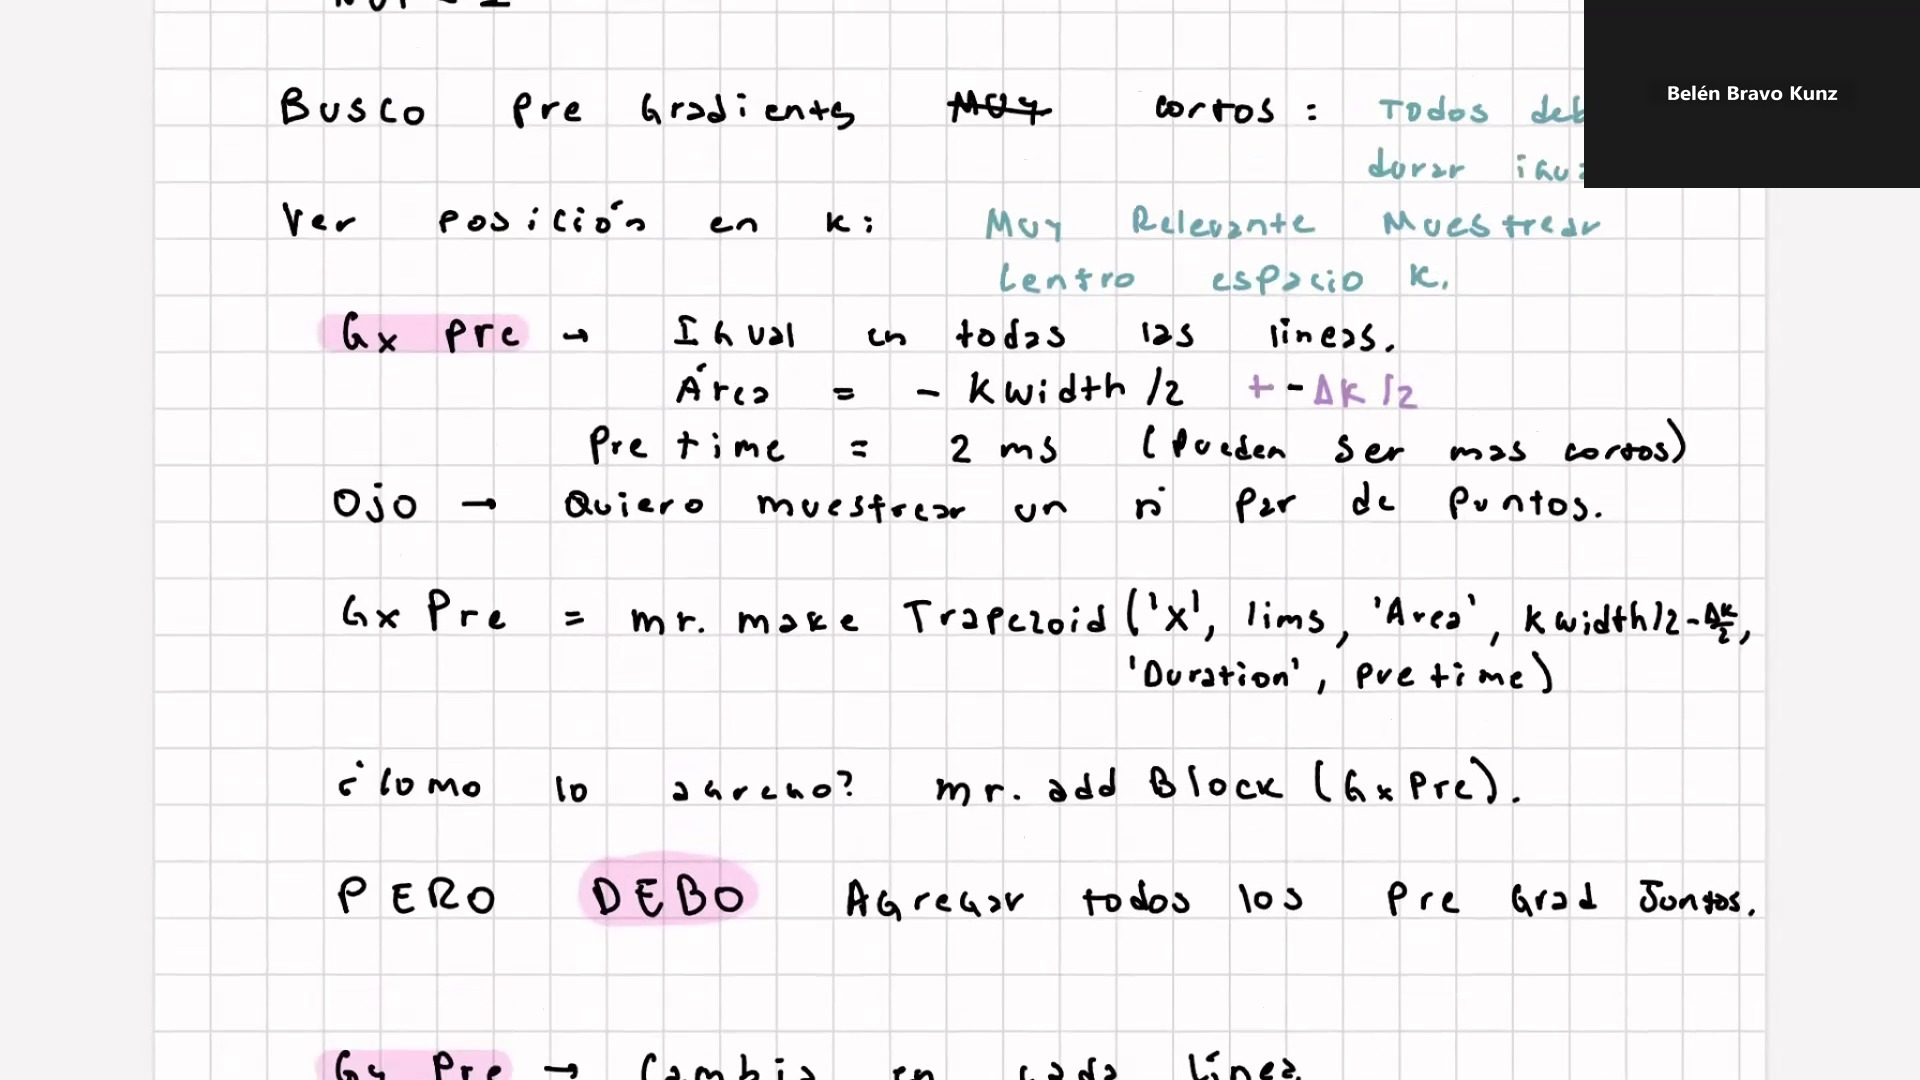 Busco Pre Gradients Muy cortos : Todos deb
durar igua
Belén Bravo Kunz
Ver posición en k: Muy Relevante Muestrear
Centro espacio k.
Gx pre → Igual en todas las líneas.
Área = - kwidth/2 + - Δk/2
Pre time = 2 ms (Pueden ser mas cortos)
Ojo → Quiero muestrear un n° par de puntos.
Gx Pre = mr. make Trapezoid ('x', lims, 'Area', kwidth/2-Δk/2,
'Duration', pre time)
¿Como lo agrego? mr. add Block (Gx Pre).
PERO DEBO Agregar todos los Pre Grad Juntos.
Gy Pre → Cambia en cada línea.